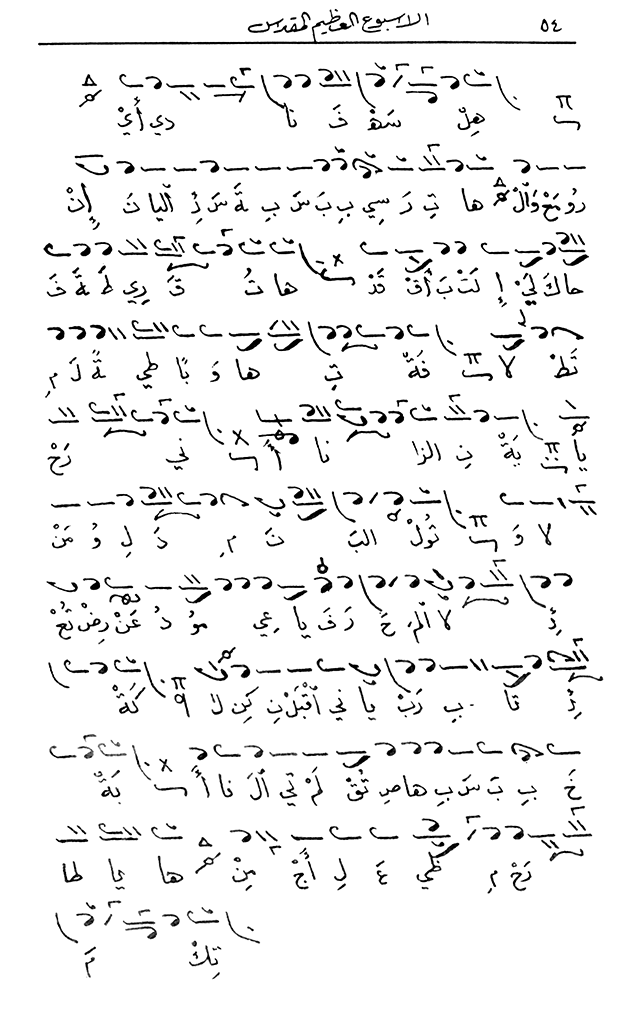 ٥٤ الاسبوع العظيم المقدس
هِلْ سَهْ فَ نا دي أَيْ
رُو مَعْ وَالْ ها تِ رَ سي بِ بَ سَ بِ ةَ سَ رَ ءِ اليا تَ إِنْ
حاكَ لَيْ إِ لَتْ بَ أَقْ قَدْ ها تُ قَ ري طَ ةَ فَ
تَظْ لا فَةٌ تِ ها وَ بًا طي ةً لَ مِ
يا بَةْ نِ الزا نا أَ ني رَحْ
لا وَ تُولْ البَ تَ مِ دَ لِ وُ مَنْ
خَ رَفَ يا عي مَوْ دُ عَنْ رِضْ تُعْ
ءِ قا بِ رَبْ يا ني اقْبَلْنِ كِن
خَ بِ بَ سَ بِ ها صِ تُقْ لَمْ تي الَ فا أَ بَةٌ
رَحْ مِ ظي عَ لِ أَجْ مِنْ ها يا طا
تِكْ مَ